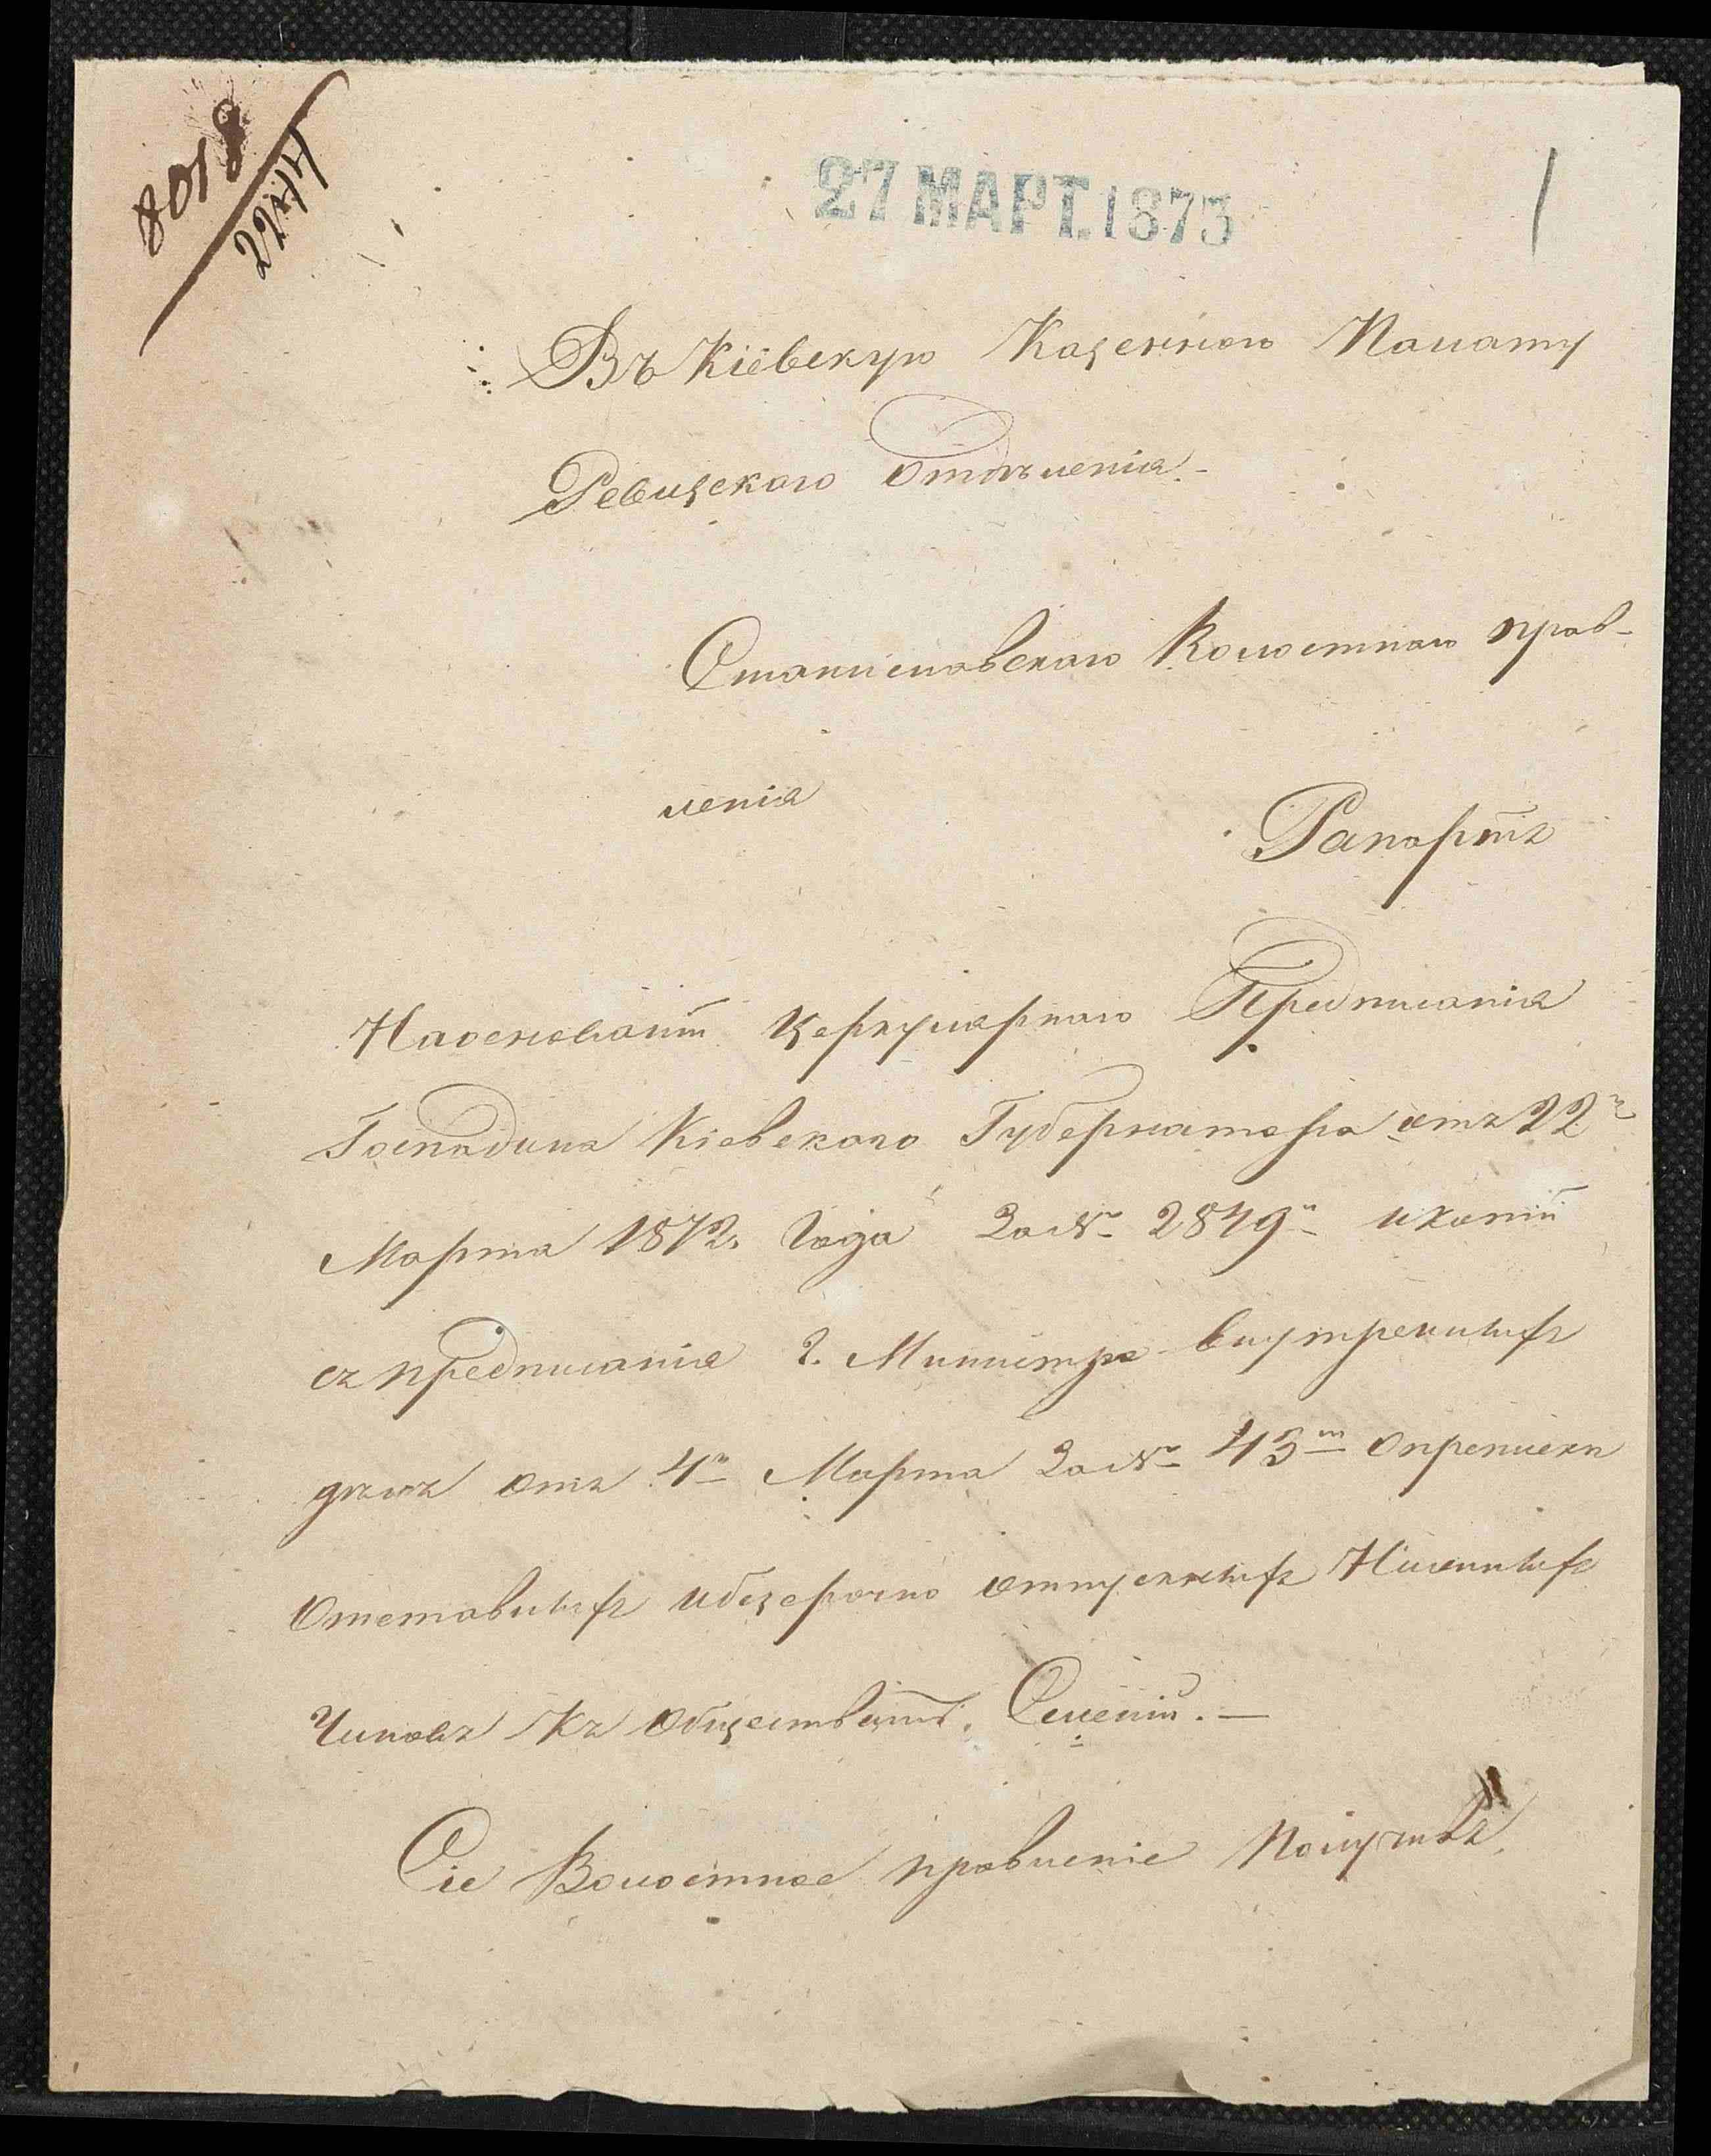 8018
2244
27 МАРТ. 1873
1
Въ Кіевскую Казенною Палату
Ревизскаго Отдѣленія.
Станиславскаго Волостнаго прав-
ленія
Рапортъ
Наоснованіи церкулярнаго Предписанія
Господина Кіевскаго Губернатора отъ 22го
Марта 1872. года За № 2849м икопіи
съ предписанія г. Министра внутренныхъ
дѣлъ отъ 4го Марта За № 43м
Отставныхъ ибезсрочно отпускныхъ Нижныхъ
Чиновъ къ Обществамъ. Селеній. —
Сіе Волостное правленіе Получивъ,